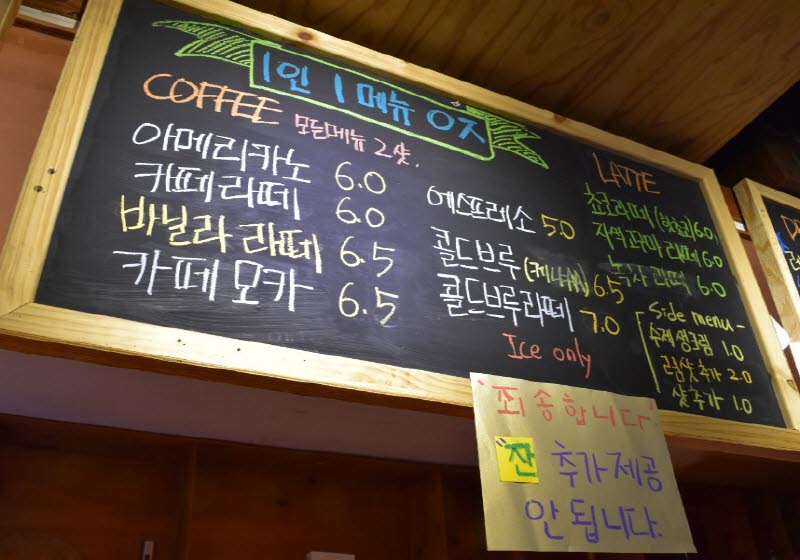 1인 1메뉴 OX
COFFEE 모든메뉴 2샷.
아메리카노 6.0
카페라떼 6.0
바닐라 라떼 6.5
카페모카 6.5
에스프레소 5.0
콜드브루 (케냐AA) 6.5
콜드브루라떼 7.0
Ice only
LATTE
초코라떼 6.0
자색고구마 라떼 6.0
녹차라떼 6.0
Side menu -
수제생크림 1.0
크림샷추가 2.0
샷추가 1.0
"죄송합니다"
"잔" 추가제공
안됩니다.